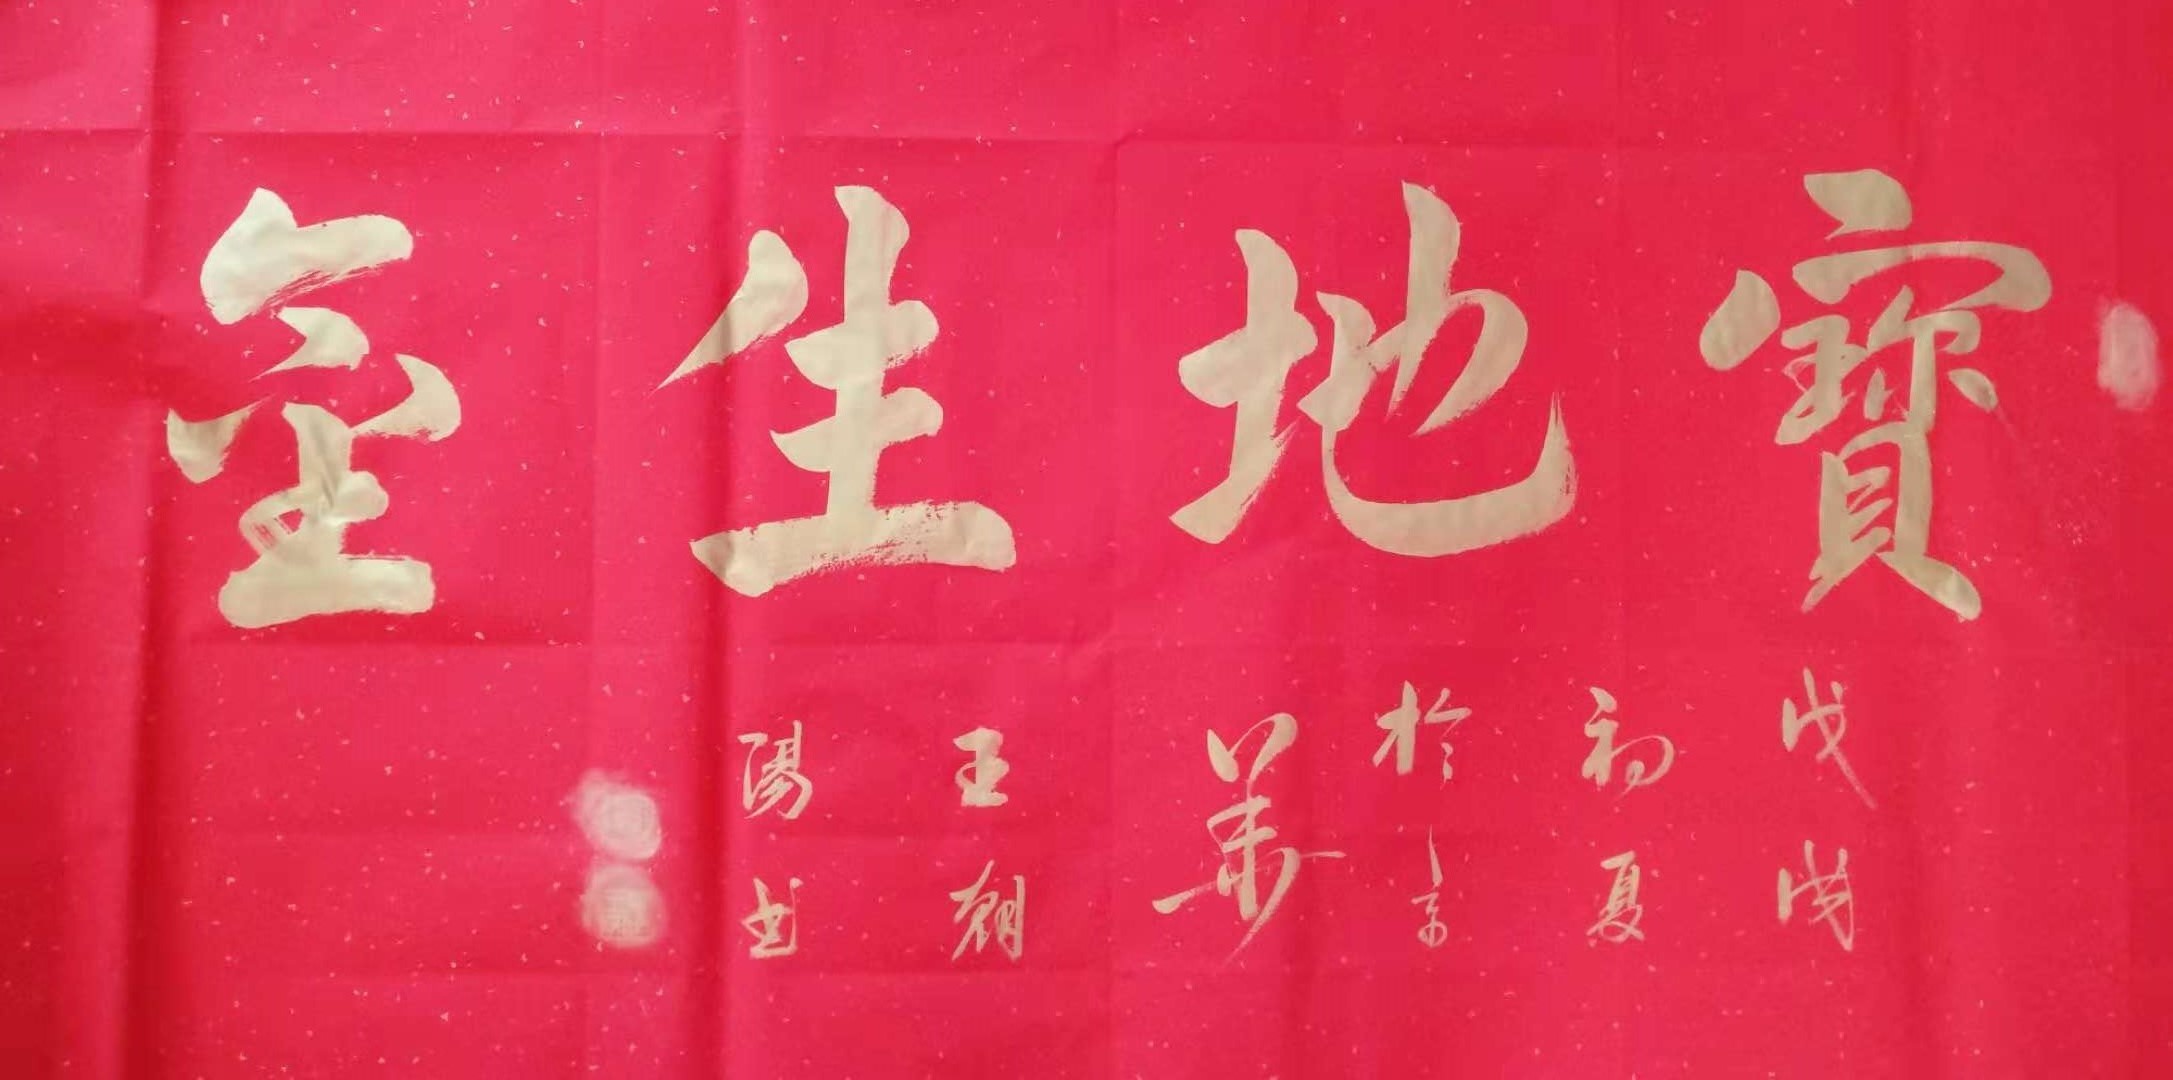 寶地生金
戊戌
初夏
於京
華
王朝
陽書